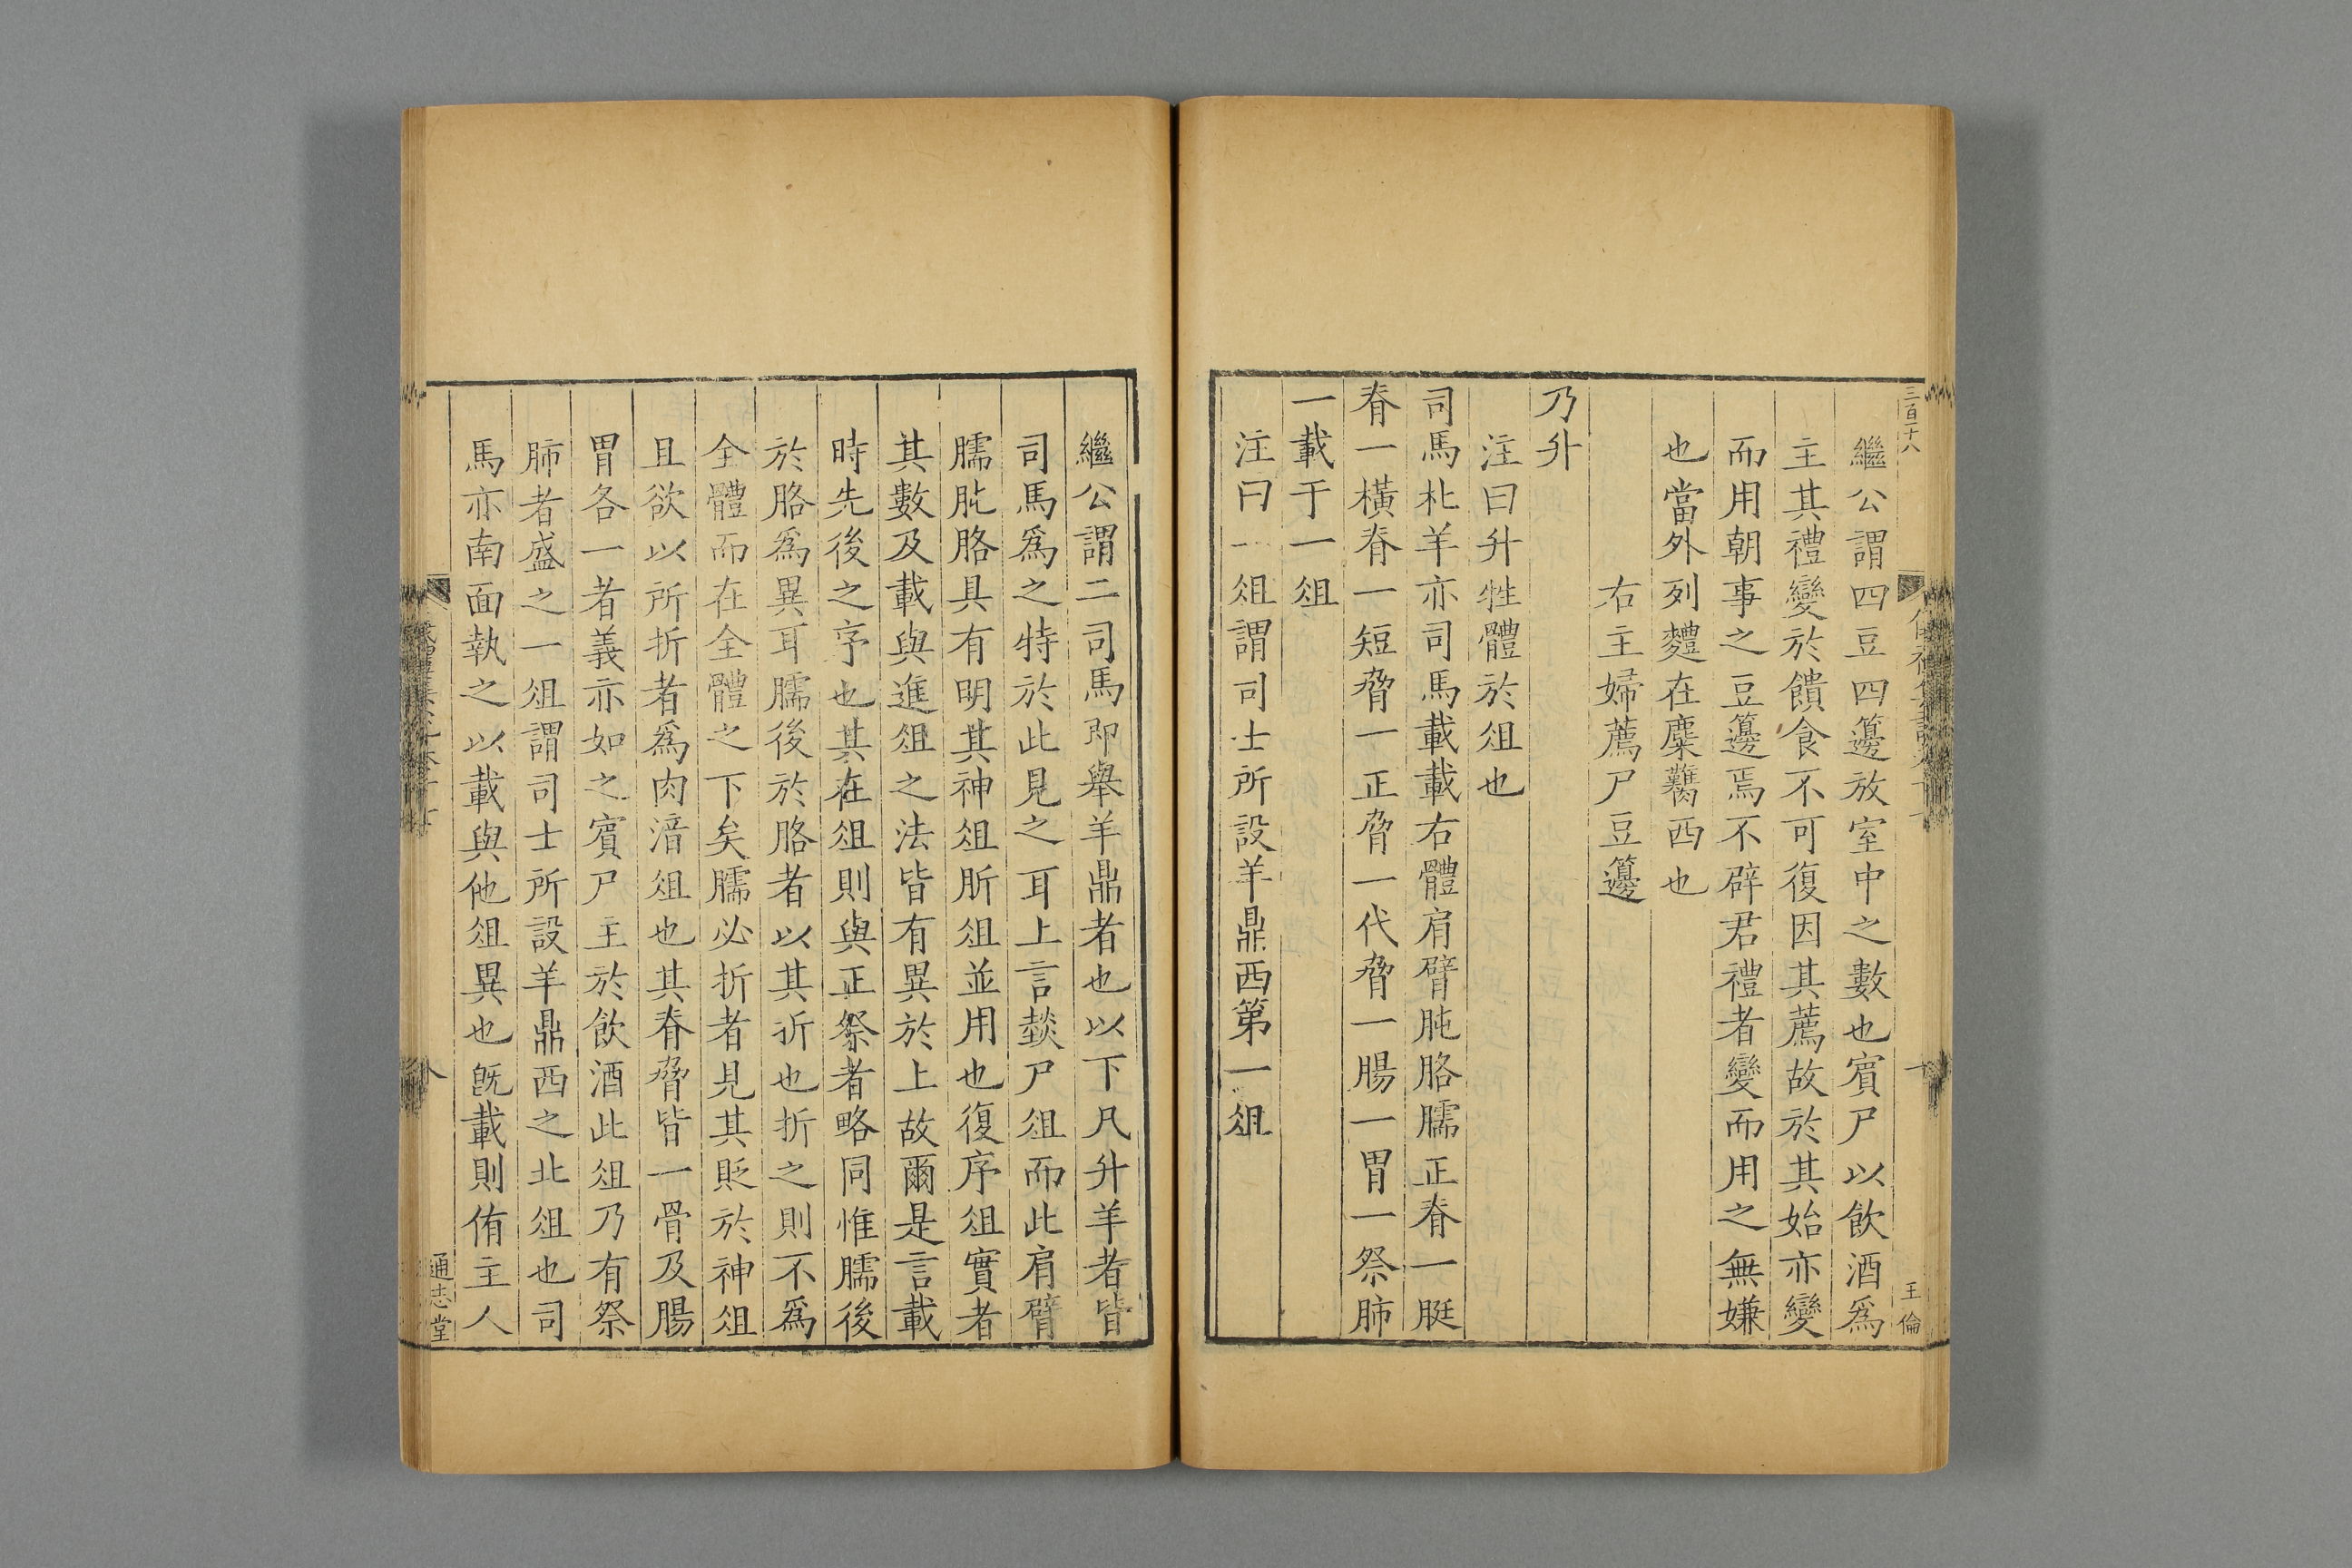 三百十八
繼公謂四豆四籩放室中之數也賓尸以飲酒爲
主其禮變於饋食不可復因其薦故於其始亦變
而用朝事之豆籩焉不辟君禮者變而用之無嫌
也當外列麷在麋臡西也
右主婦薦尸豆籩
乃升
注曰升牲體於俎也
司馬朼羊亦司馬載載右體肩臂肫胳臑正脊一脡
脊一橫脊一短脅一正脅一代脅一腸一胃一祭肺
一載于一俎
注曰一俎謂司士所設羊鼎西第一俎
王倫
繼公謂二司馬即舉羊鼎者也以下凡升羊者皆
司馬爲之特於此見之耳上言燅尸俎而此肩臂
臑肫胳具有明其神俎肵俎並用也復序俎實者
其數及載與進俎之法皆有異於上故爾是言載
時先後之序也其在俎則與正祭者略同惟臑後
於胳爲異耳臑後於胳者以其折也折之則不爲
全體而在全體之下矣臑必折者見其貶於神俎
且欲以所折者爲肉湆俎也其脊脅皆一骨及腸
胃各一者義亦如之賓尸主於飲酒此俎乃有祭
肺者盛之一俎謂司士所設羊鼎西之北俎也司
馬亦南面執之以載與他俎異也旣載則侑主人
通志堂